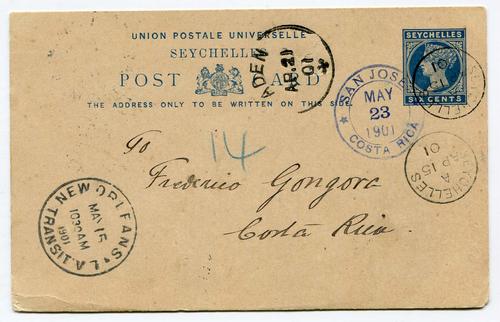 UNION POSTALE UNIVERSELLE
SEYCHELLES
POST CARD
THE ADDRESS ONLY TO BE WRITTEN ON THIS
SEYCHELLES
SIX CENTS
ADEN
AP.21
01
SAN JOSE
MAY
23
1901
COSTA RICA
SEYCHELLES
A
AP 15
01
14
To
Frederico Gongora
Costa Rica.
NEW ORLEANS, LA.
MAY 15
1030AM
1901
TRANSIT